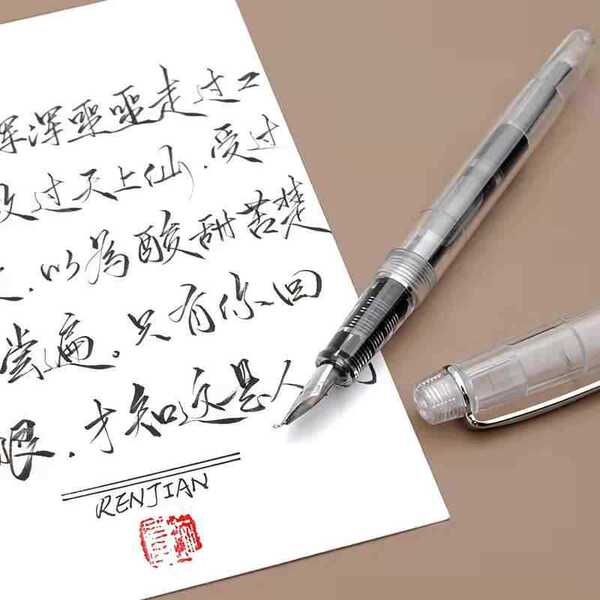 浑浑噩噩走过
过天上仙，受过
，以为酸甜苦楚
尝遍。只有你回
眼，才知这是人
RENJIAN